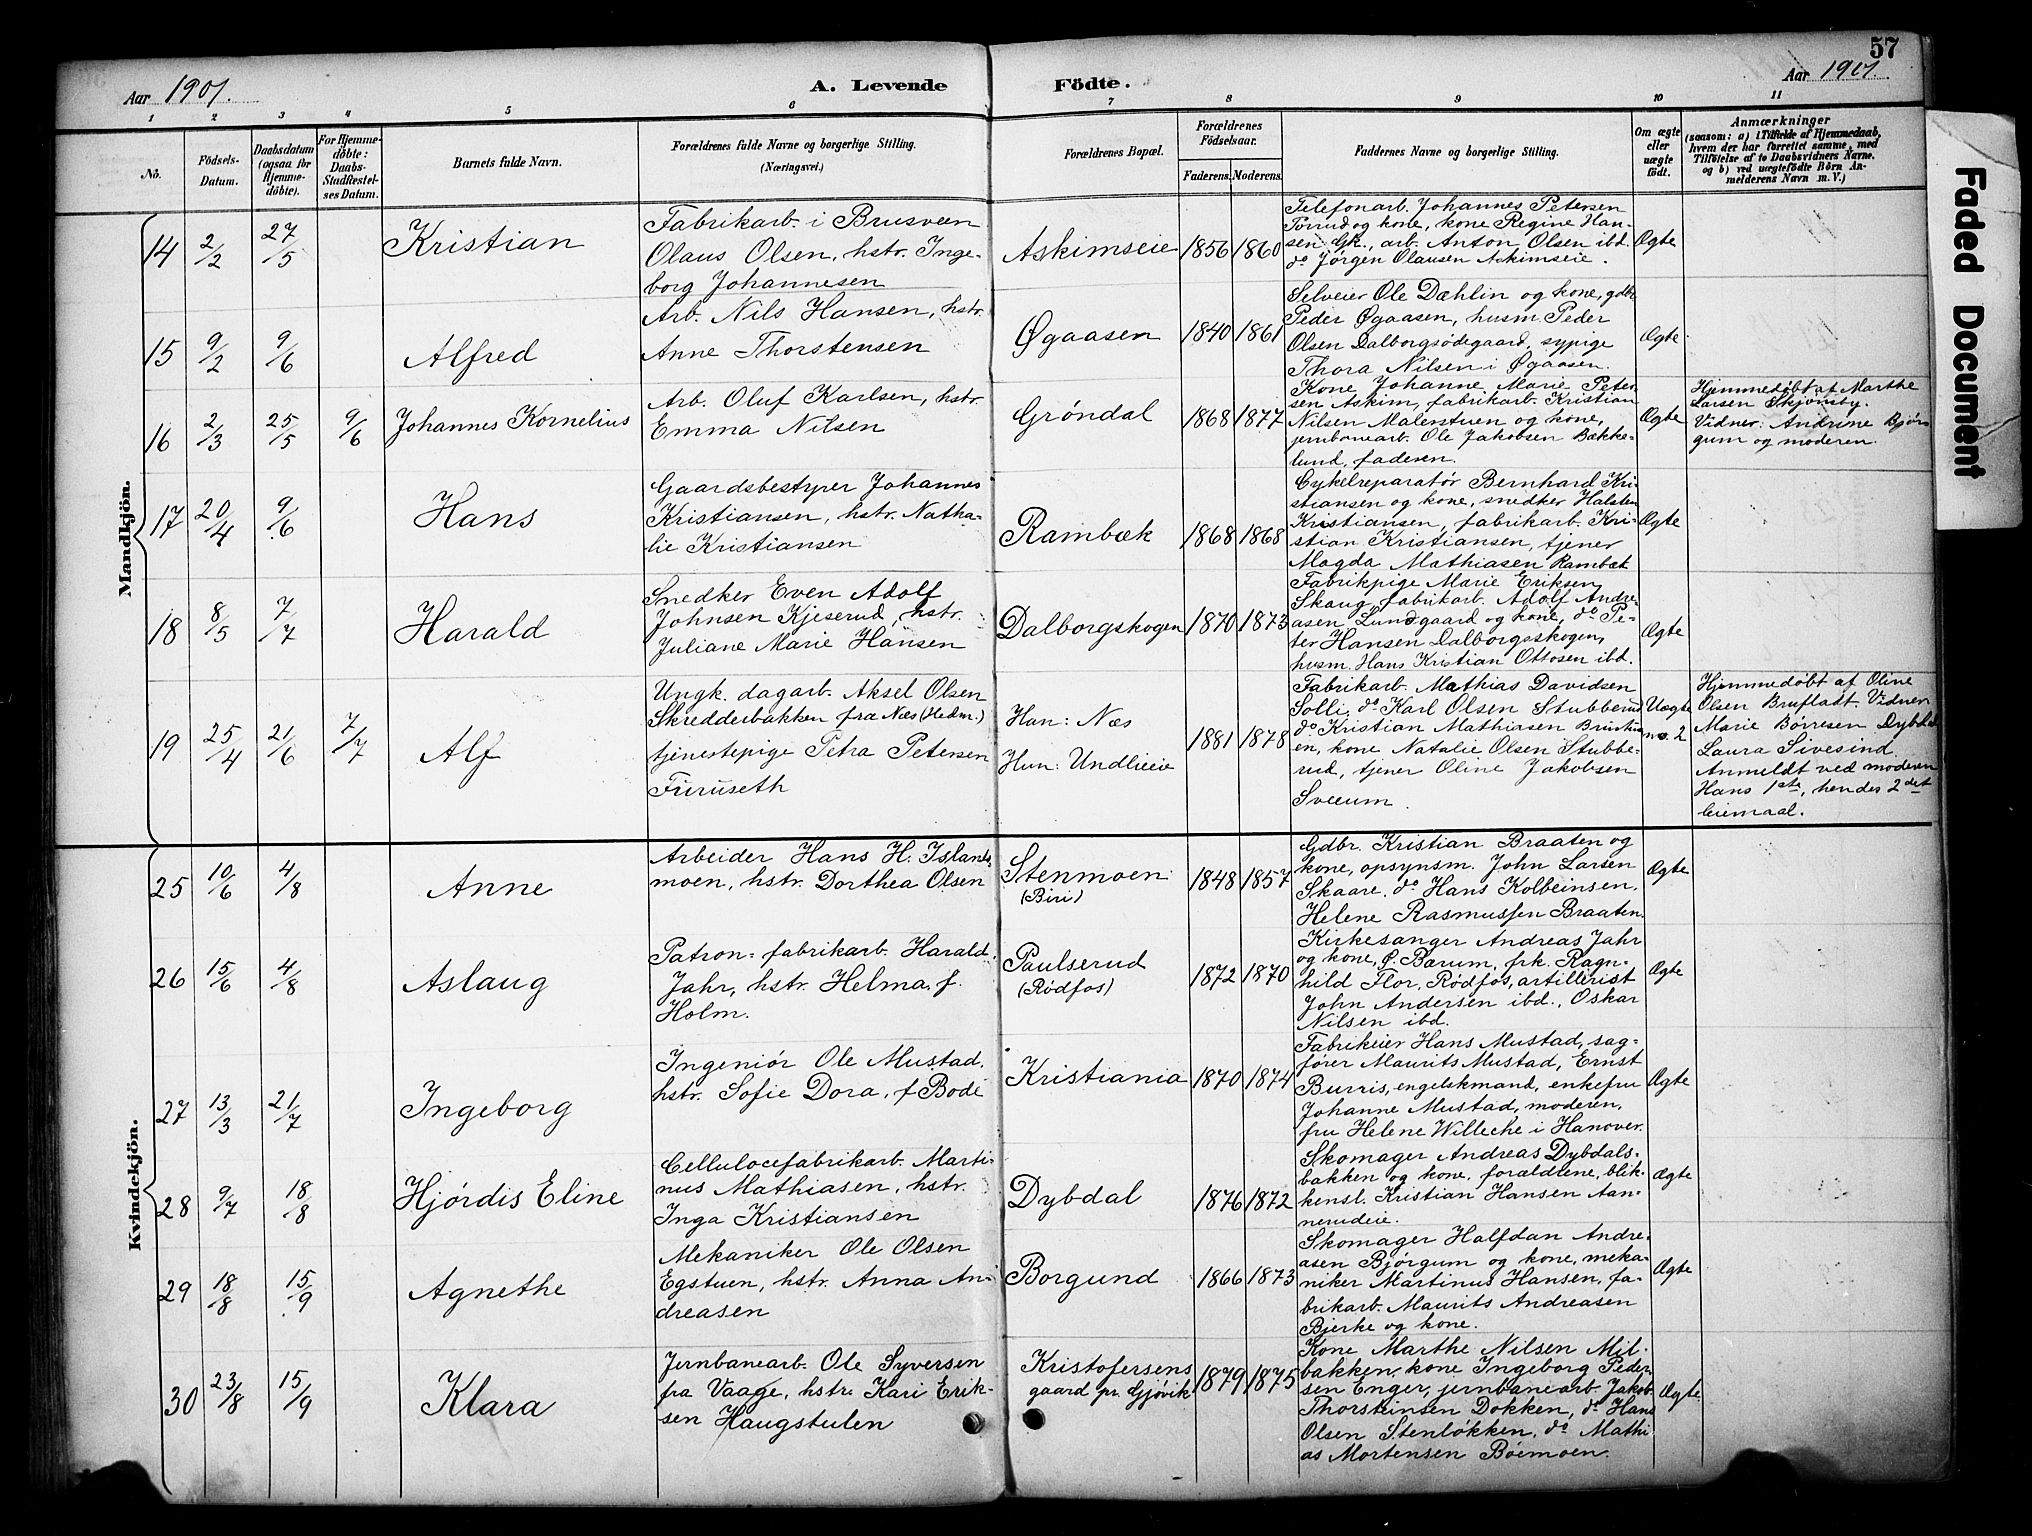 57
Aar 1901.
A. Levende
Födte.
Aar 1901.
1 2 3 4 5 6 7 8 9 10 11
No.
Födsels-
Datum.
Daabsdatum
(ogsaa for
Hjemme-
döbte).
For Hjemme-
döbte:
Daabs-
Stadfæstel-
ses Datum.
Barnets fulde Navn.
Forældrenes fulde Navne og borgerlige Stilling.
(Næringsvei.)
Forældrenes Bopæl.
Forældrenes
Födselsaar.
Faderens. Moderens.
Faddernes Navne og borgerlige Stilling.
Om ægte
eller
uægte
födt.
Anmærkninger
(saasom: a) i Tilfælde af Hjemmedaab,
hvem der har forrettet samme, med
Tilföielse af to Daabsvidners Navne.
og b) ved uægtefödte Börn An-
melderens Navn m. V.)
Faded Document
Mandkjön.
14
2/2
27/5
Kristian
Fabrikarb. i Brusveen
Olaus Olsen, hstr. Inge-
borg Johannesen
Askimseie
1856
1860
Telefonarb. Johannes Petersen
Torrud og kone, kone Regine Han-
sen Gk., arb. Anton Olsen ibd.
do Jørgen Olausen Askimseie.
Ægte
15
9/2
9/6
Alfred
Arb. Nils Hansen, hstr.
Anne Thorstensen
Øgaasen
1840
1861
Selveier Ole Dæhlin og kone, gdbr.
Peder Øgaasen, husm. Peder
Olsen Dalborgsødegaard, sypige
Thora Nilsen i Øgaasen.
Ægte
16
2/3
25/5
9/6
Johannes Kornelius
Arb. Oluf Karlsen, hstr.
Emma Nilsen
Grøndal
1868
1877
Kone Johanne Marie Peter-
sen Askim, fabrikarb. Kristian
Nilsen Malerstuen og kone,
jernbanearb. Ole Jakobsen Bække-
lund, faderen.
Ægte
Hjemmedøbt af Marthe
Larsen Skjønsby.
Vidner: Andrine Bjør
gum og moderen.
17
20/4
9/6
Hans
Gaardsbestyrer Johannes
Kristiansen, hstr. Natha-
lie Kristiansen
Rambæk
1868
1868
Cykelreparatør Bernhard Kri-
stiansen og kone, snedker Halsten
Kristiansen, fabrikarb. Kri-
stian Kristiansen, tjener
Magda Mathiasen Rambæk
Ægte
18
8/5
7/7
Harald
Snedker Even Adolf
Johnsen Kjeserud, hstr.
Juliane Marie Hansen
Dalborgskogen
1870
1873
Fabrikpige Marie Eriksen
Skaug, fabrikarb. Adolf Andre-
asen Lundgaard og kone, do Pe-
ter Hansen Dalborgsskogen,
husm. Hans Kristian Ottosen ibd.
Ægte
19
25/4
21/6
7/7
Alf
Ungk. dagarb. Aksel Olsen
Skredderbakken fra Næs (Hedm.)
tjenestepige Petra Petersen
Furuseth
Han: Næs
Hun: Undlieeie
1881
1878
Fabrikarb. Mathias Davidsen
Solli, do Karl Olsen Stubberud
do Kristian Mathiasen
en, kone Natalie Olsen Stubbe-
rud, tjener Oline Jakobsen
Sveeum.
Uægte
no. 2
Hjemmedøbt af Oline
Olsen Brufladt. Vidner
Marie Børresen Dybdal
Laura Sivesind
Anmeldt ved moderen
Hans 1ste, hendes 2det
leiemaal.
Kvindekjön.
25
10/6
4/8
Anne
Arbeider Hans H. Islands-
moen, hstr. Dorthea Olsen
Stenmoen
(Biri)
1848
1857
Gdbr. Kristian Braaten og
kone, opsynsm. John Larsen
Skaare, do Hans Kolbeinsen,
Helene Rasmussen Braaten.
Ægte
26
15/6
4/8
Aslaug
Patron-fabrikarb. Harald
Jahr, hstr. Helma f.
Holm.
Paulserud
(Rødfos)
1872
1870
Kirkesanger Andreas Jahr
og kone, Ø. Bærum, frk. Ragn-
hild Flor, Rødfos, artillerist
John Andersen ibd., Oskar
Nilsen ibd.
Ægte
27
13/3
21/7
Ingeborg
Ingeniør Ole Mustad,
hstr. Sofie Dora, f Bode
Kristiania
1870
1874
Fabrikeier Hans Mustad, sag-
fører Maurits Mustad, Ernst
Burris, engelskmand, enkefru
Johanne Mustad, moderen,
fru Helene Willeche i Hanover.
Ægte
28
9/7
18/8
Hjørdis Eline
Cellulosefabrikarb. Marti-
nus Mathiasen, hstr.
Inga Kristiansen
Dybdal
1876
1872
Skomager Andreas Dybdals-
bakken og kone, forældrene, blik-
kensl. Kristian Hansen Aan-
nerudeie.
Ægte
29
18/8
15/9
Agnethe
Mekaniker Ole Olsen
Egstuen, hstr. Anna An-
dreasen
Borgund
1866
1873
Skomager Halfdan Andre-
asen Bjørgum og kone, meka-
niker Martinus Hansen, fa-
brikarb. Maurits Andreasen
Bjerke og kone.
Ægte
30
23/8
15/9
Klara
Jernbanearb. Ole Syversen
fra Vaage, hstr. Kari Erik-
sen Haugstulen
Kristofersens
gaard pr. Gjøvik
1879
1875
Kone Marthe Nilsen Mil-
bakken, kone Ingeborg Peder-
sen Enger, jernbanearb. Jakob
Thorsteinsen Dokken, do Hans
Olsen Stenløkken, do Mathi
as Mortensen Bøemoen.
Ægte